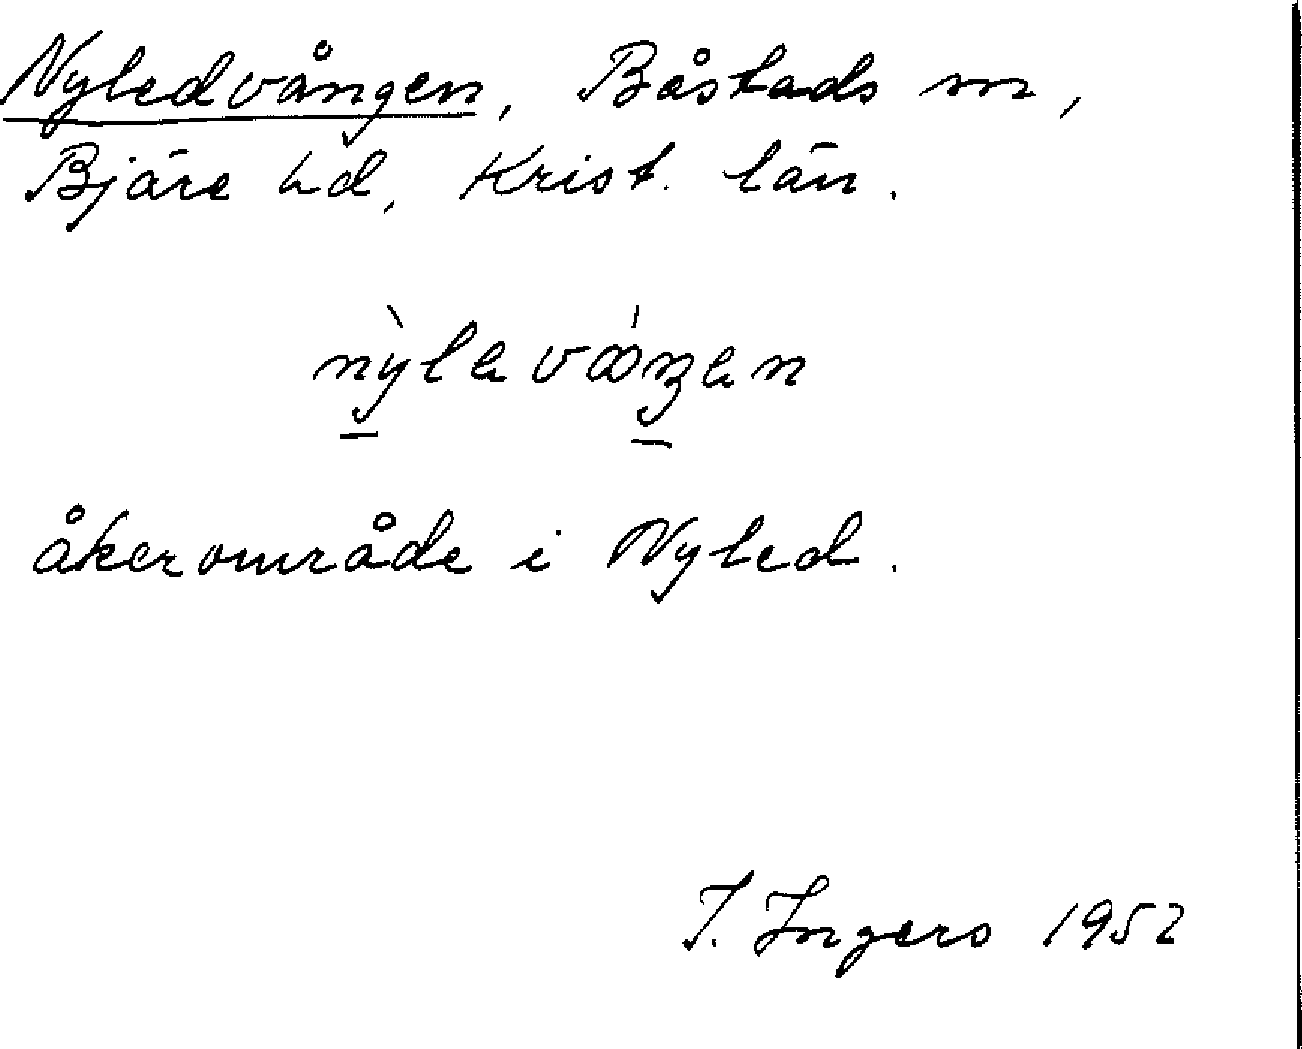 Nyledvången, Båstads sn,
Bjäre hd, Krist. län.
åkerområde i Nyled.
I. Ingers 1952